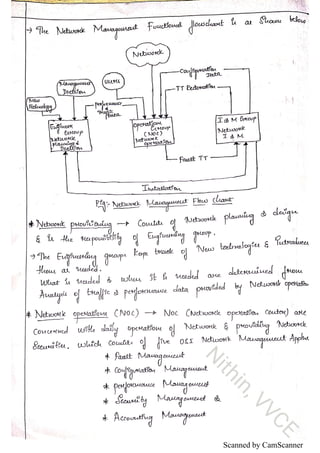 → The Network Management Functional flowchart is as shown below
Network
Management
Decision
users
Configuration
Data
New
Technology
performance &
Traffic
Data
TT Restoration
Engineering
Group
Network
planning &
Decision
Operation
Group
(NOC)
Network
operation
I & M Group
Network
I & M
Fault TT
Installation
Fig:- Network Management Flow chart
* Network provisioning → Consists of Network planning & design
& is the responsibility of Engineering group.
→ The Engineering group keeps track of New technologies & introduces
them as needed.
What is needed & when it is needed are determined from
Analysis of traffic & performance data provided by Network operation
* Network operations (NOC) → NOC (Network operation center) are
concerned with daily operations of Network & providing Network
Securities. which consists of five OSI Network Management Appln
* Fault Management
* Configuration Management
* performance Management
* Security Management &
* Accounting Management
Nithin, VVCE
Scanned by CamScanner